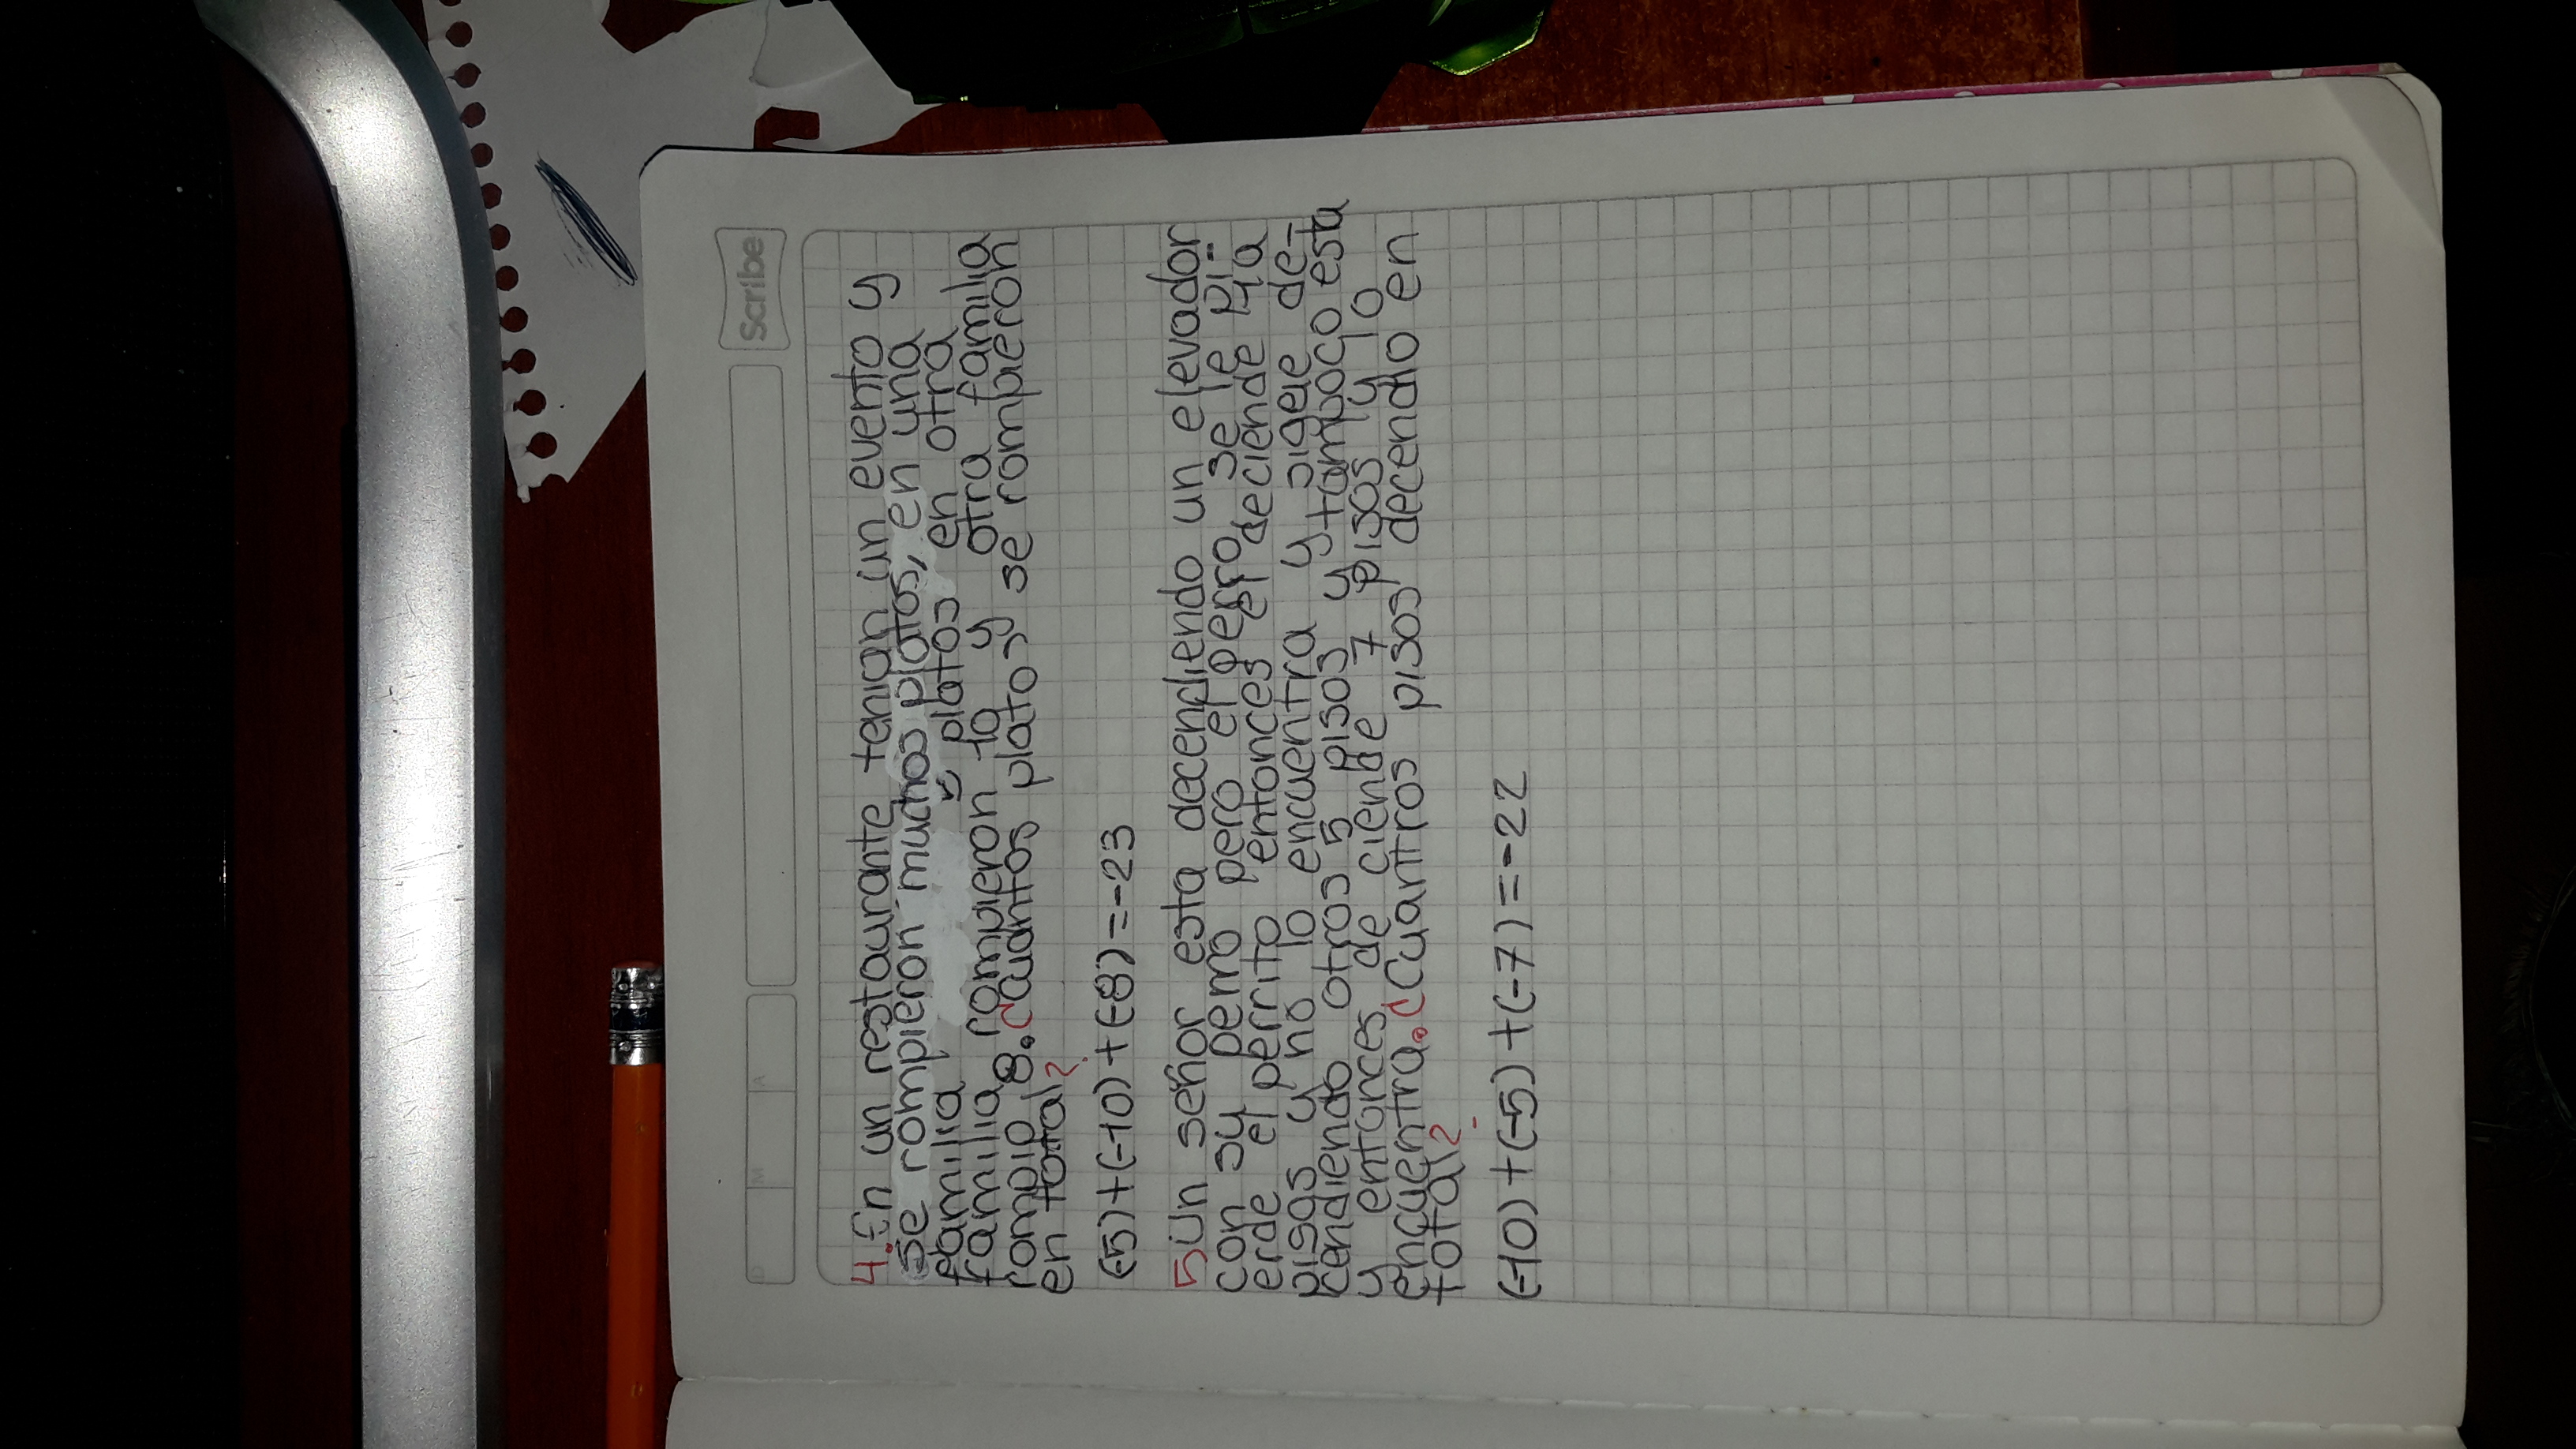 Scribe
D M A
4.En un restaurante tenian un evento y
se rompieron muchos platos, en una
familia 5 platos en otra
familia rompieron 10 y otra familia
rompio 8.¿cuantos platos se rompieron
en total?
(-5)+(-10)+(-8)=-23
5Un señor esta decendiendo un elevador
con su perro pero el perro se le pi-
erde el perrito entonces el deciende 10
pisos y no lo encuentra y sigue de-
cendiendo otros 5 pisos y tampoco esta
y entonces deciende 7 pisos y lo
encuentra.¿Cuantros pisos decendio en
total?
(-10)+(-5)+(-7)=-22